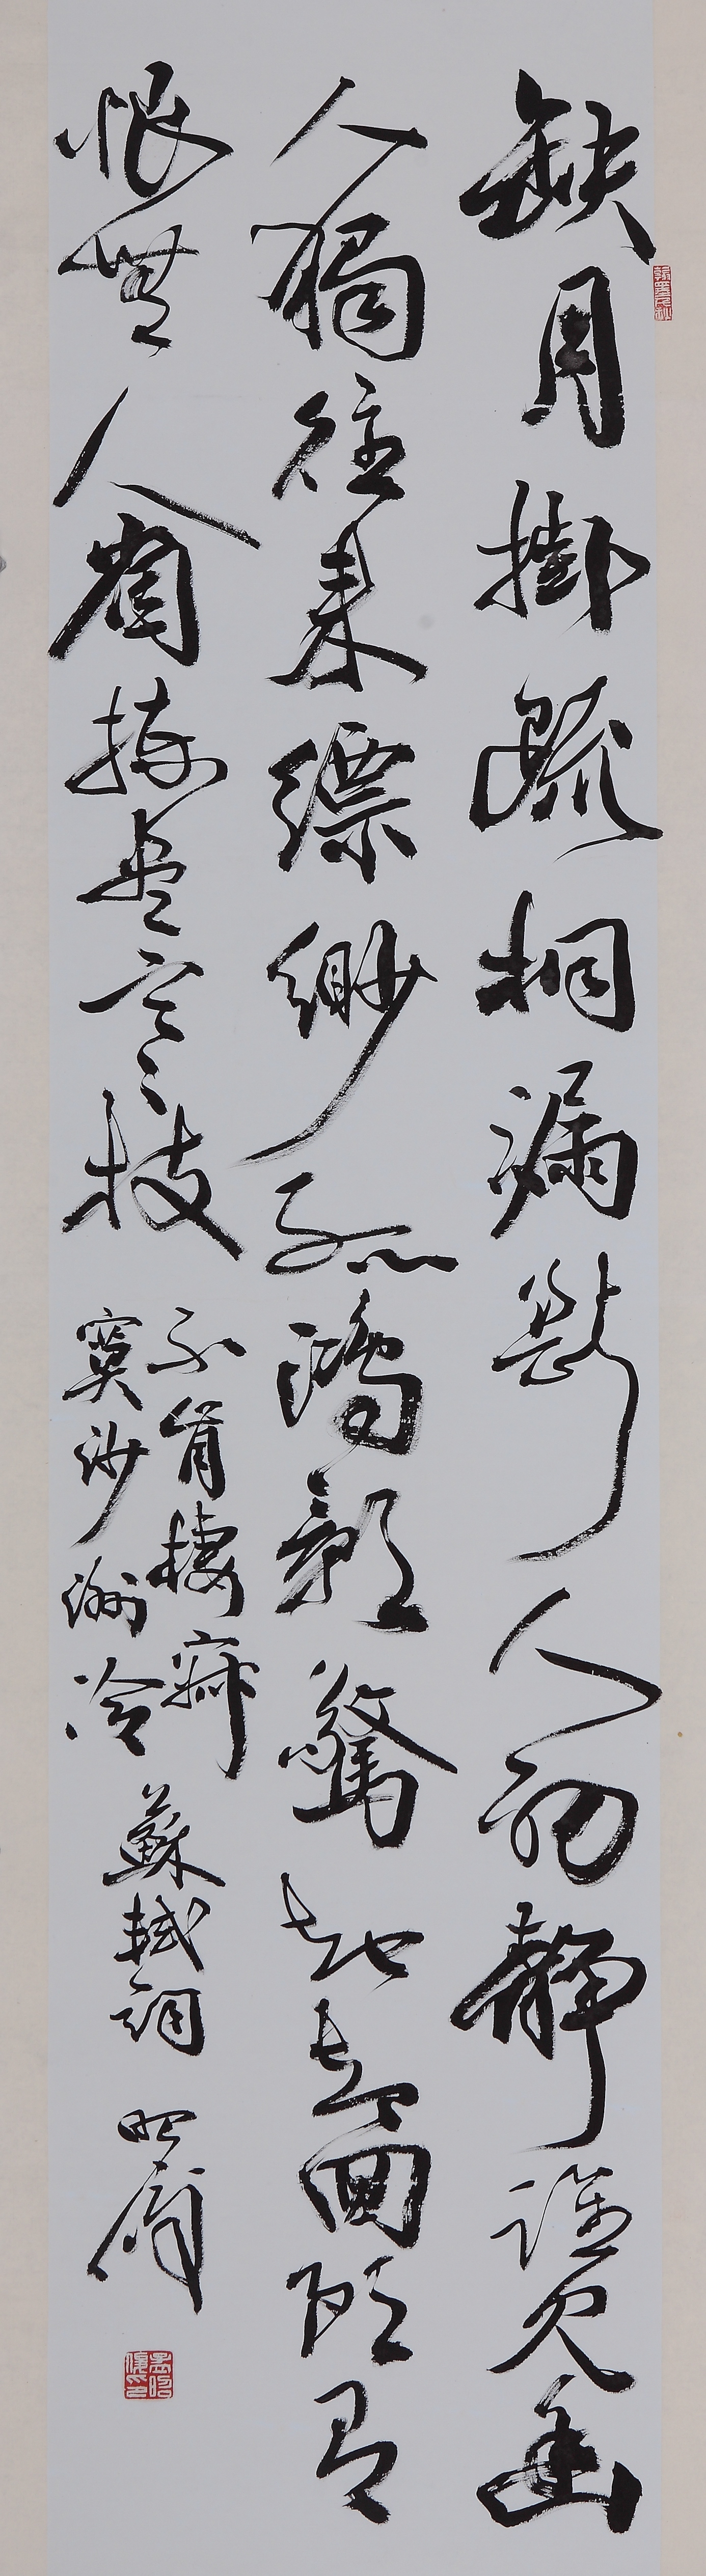 缺月掛疏桐漏斷人初靜誰見幽
人獨往來縹緲孤鴻影驚起卻回頭有
恨無人省揀盡寒枝
不肯棲寂
寞沙洲冷
蘇軾詞
昭